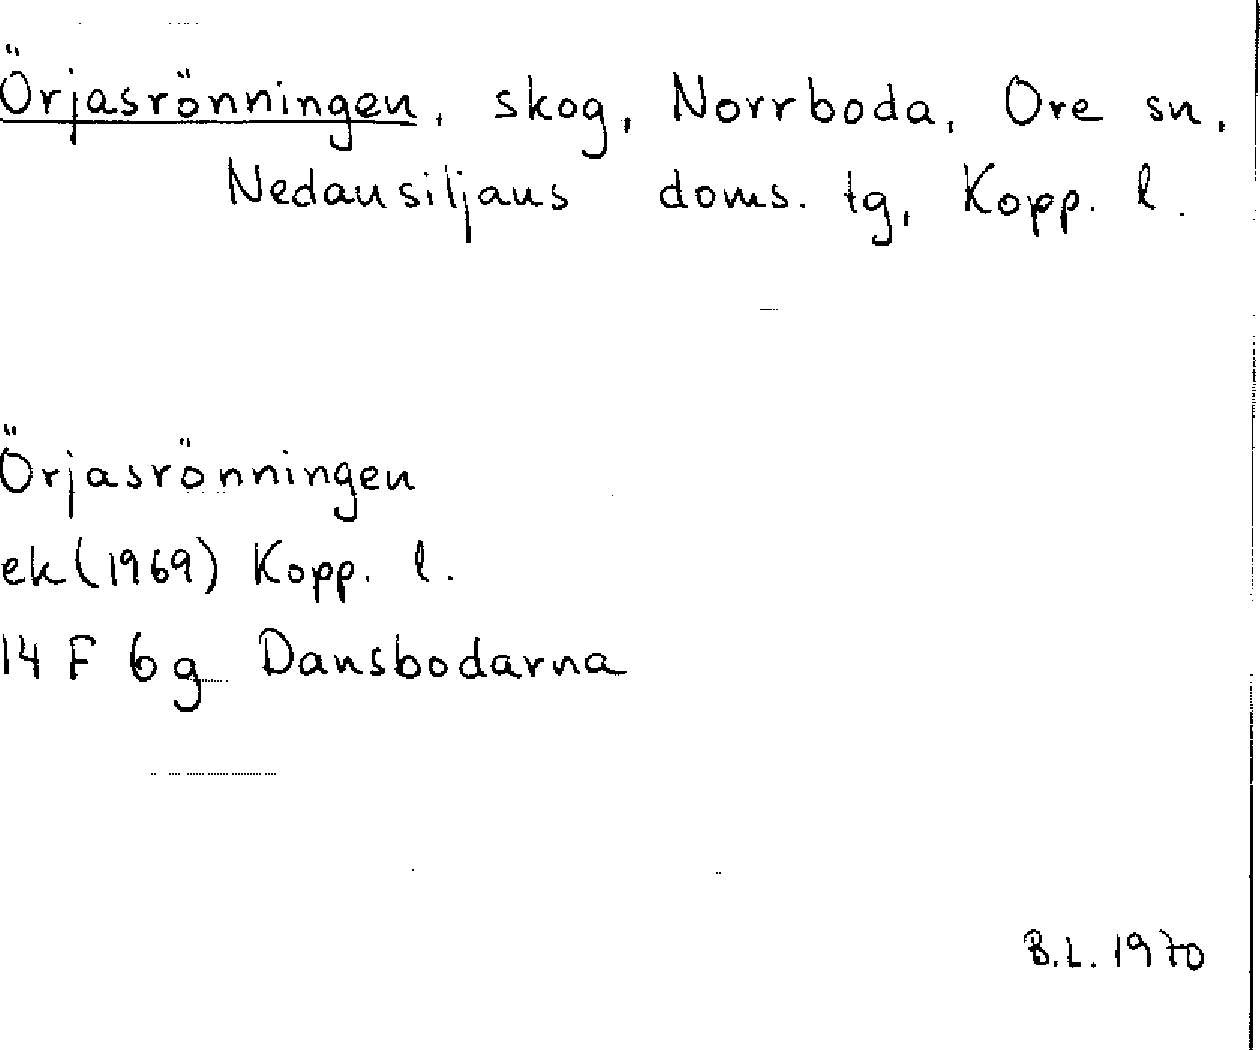 Örjasrönningen, skog, Norrboda, Ore sn,
Nedansiljans doms. tg, Kopp. l.
Örjasrönningen
ek (1969) Kopp. l.
14 F 6g Dansbodarna
B.L. 1970